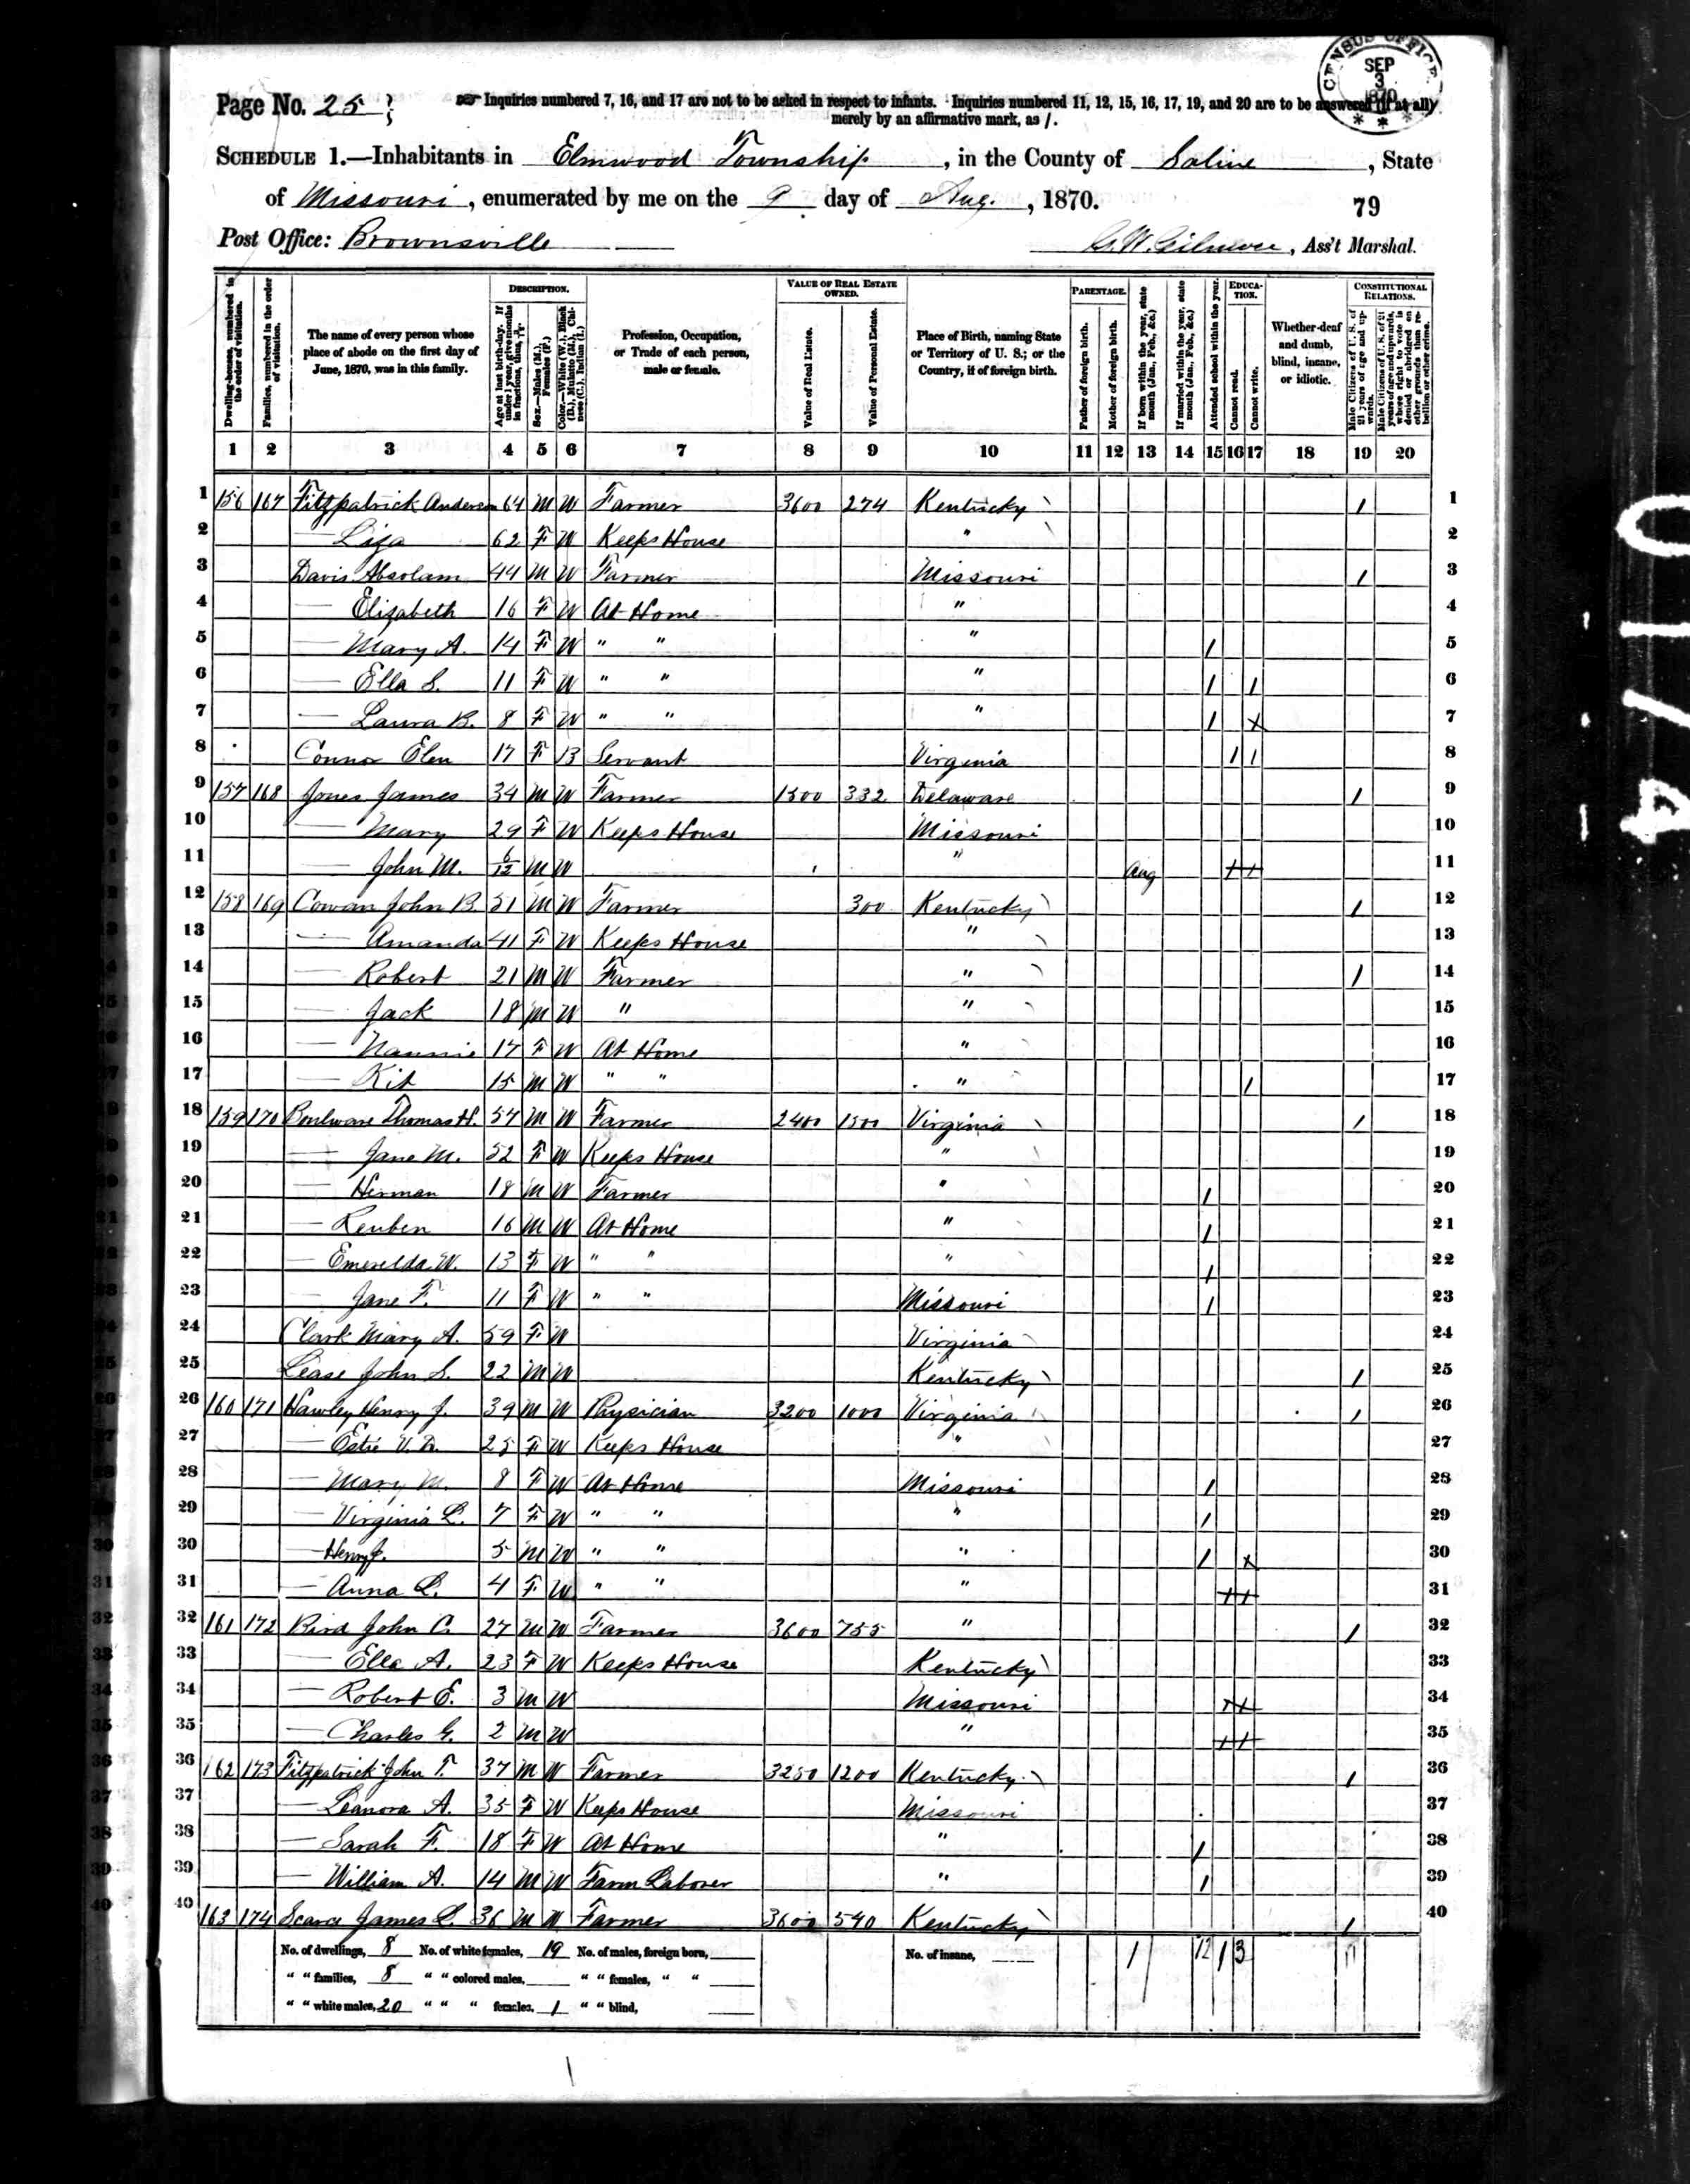 Page No. 25
☞ Inquiries numbered 7, 16, and 17 are not to be asked in respect to infants. Inquiries numbered 11, 12, 15, 16, 17, 19, and 20 are to be answered (if at all)
merely by an affirmative mark, as /.
CENSUS OFFICE
SEP
3
1870
* * *
SCHEDULE 1.—Inhabitants in Elmwood Township, in the County of Saline, State
of Missouri, enumerated by me on the 9 day of Aug., 1870.
79
Post Office: Brownsville
G.W. Gilmore, Ass't Marshal.
Dwelling-houses, numbered in the order of visitation.
Families, numbered in the order of visitation.
The name of every person whose place of abode on the first day of June, 1870, was in this family.
DESCRIPTION.
Age at last birth-day. If under 1 year, give months in fractions, thus,
Sex.—Males (M.), Females (F.)
Color.—White (W.), Black (B.), Mulatto (M.), Chinese (C.), Indian (I.)
Profession, Occupation, or Trade of each person, male or female.
VALUE OF REAL ESTATE OWNED.
Value of Real Estate.
Value of Personal Estate.
Place of Birth, naming State or Territory of U. S.; or the Country, if of foreign birth.
PARENTAGE.
Father of foreign birth.
Mother of foreign birth.
If born within the year, state month (Jan., Feb., &c.)
If married within the year, state month (Jan., Feb., &c.)
Attended school within the year.
EDUCATION.
Cannot read.
Cannot write.
Whether deaf and dumb, blind, insane, or idiotic.
CONSTITUTIONAL RELATIONS.
Male Citizens of U. S. of 21 years of age and upwards.
Male Citizens of U. S. of 21 years of age and upwards, whose right to vote is denied or abridged on other grounds than rebellion or other crime.
1 2 3 4 5 6 7 8 9 10 11 12 13 14 15 16 17 18 19 20
1 156 167 Fitzpatrick Anderson 64 M W Farmer 3600 274 Kentucky / 1
2 — Liza 62 F W Keeps House " 2
3 Davis Absolam 44 M W Farmer Missouri / 3
4 — Elizabeth 16 F W At Home " 4
5 — Mary A. 14 F W " " " / 5
6 — Ella S. 11 F W " " " / / 6
7 — Laura B. 8 F W " " " / x 7
8 Connor Elen 17 F B Servant Virginia / / 8
9 157 168 Jones James 34 M W Farmer 1500 332 Delaware / 9
10 — Mary 29 F W Keeps House Missouri 10
11 — John M. 6/12 M W " Aug + + 11
12 158 169 Cowan John B. 51 M W Farmer 300 Kentucky / 12
13 — Amanda 41 F W Keeps House " 13
14 — Robert 21 M W Farmer " / 14
15 — Jack 18 M W " " 15
16 — Nannie 17 F W At Home " 16
17 — Kit 15 M W " " " / 17
18 159 170 Boulware Thomas H. 57 M W Farmer 2400 1500 Virginia / 18
19 — Jane M. 52 F W Keeps House " 19
20 — Herman 18 M W Farmer " / 20
21 — Reuben 16 M W At Home " / 21
22 — Emerelda W. 13 F W " " " / 22
23 — Jane F. 11 F W " " Missouri / 23
24 Clark Mary A. 59 F W Virginia 24
25 Lease John S. 22 M W Kentucky / 25
26 160 171 Hawley Henry J. 39 M W Physician 3200 1000 Virginia / 26
27 — 25 F W Keeps House " 27
28 — Mary M. 8 F W At Home Missouri / 28
29 — Virginia L. 7 F W " " " / 29
30 — Henry J. 5 M W " " " / x 30
31 — Anna L. 4 F W " " " + + 31
32 161 172 Bird John C. 27 M W Farmer 3600 755 " / 32
33 — Ella A. 23 F W Keeps House Kentucky 33
34 — Robert E. 3 M W Missouri + + 34
35 — Charles G. 2 M W " + + 35
36 162 173 Fitzpatrick John T. 37 M W Farmer 3250 1200 Kentucky / 36
37 — Leanora A. 35 F W Keeps House Missouri 37
38 — Sarah F. 18 F W At Home " / 38
39 — William A. 14 M W Farm Laborer " / 39
40 163 174 Scarce James L. 36 M W Farmer 3600 540 Kentucky / 40
No. of dwellings, 8 No. of white females, 19 No. of males, foreign born, No. of insane, 1 12 1 3 11
" " families, 8 " " colored males, " " females, " "
" " white males, 20 " " " females, 1 " " blind,